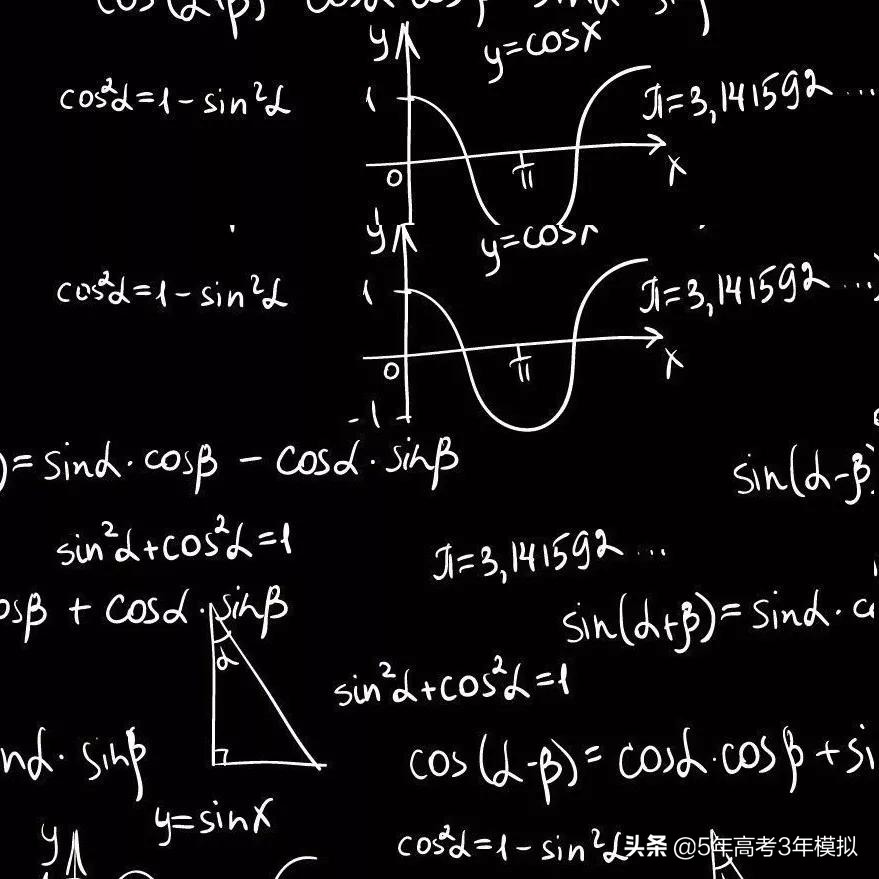 y y=cosx
cos²α=1-sin²α 1 π=3,141592...
0 π x
y y=cosx
cos²α=1-sin²α 1 π=3,141592...
0 π x
-1
)=sinα·cosβ - cosα·sinβ sin(α-β)
sin²α+cos²α=1 π=3,141592...
osβ + cosα·sinβ sin(α+β)=sinα·c
α sin²α+cos²α=1
nα·sinβ cos(α-β)=cosα·cosβ+si
y=sinx
y cos²α=1-sin²α 头条 @5年高考3年模拟